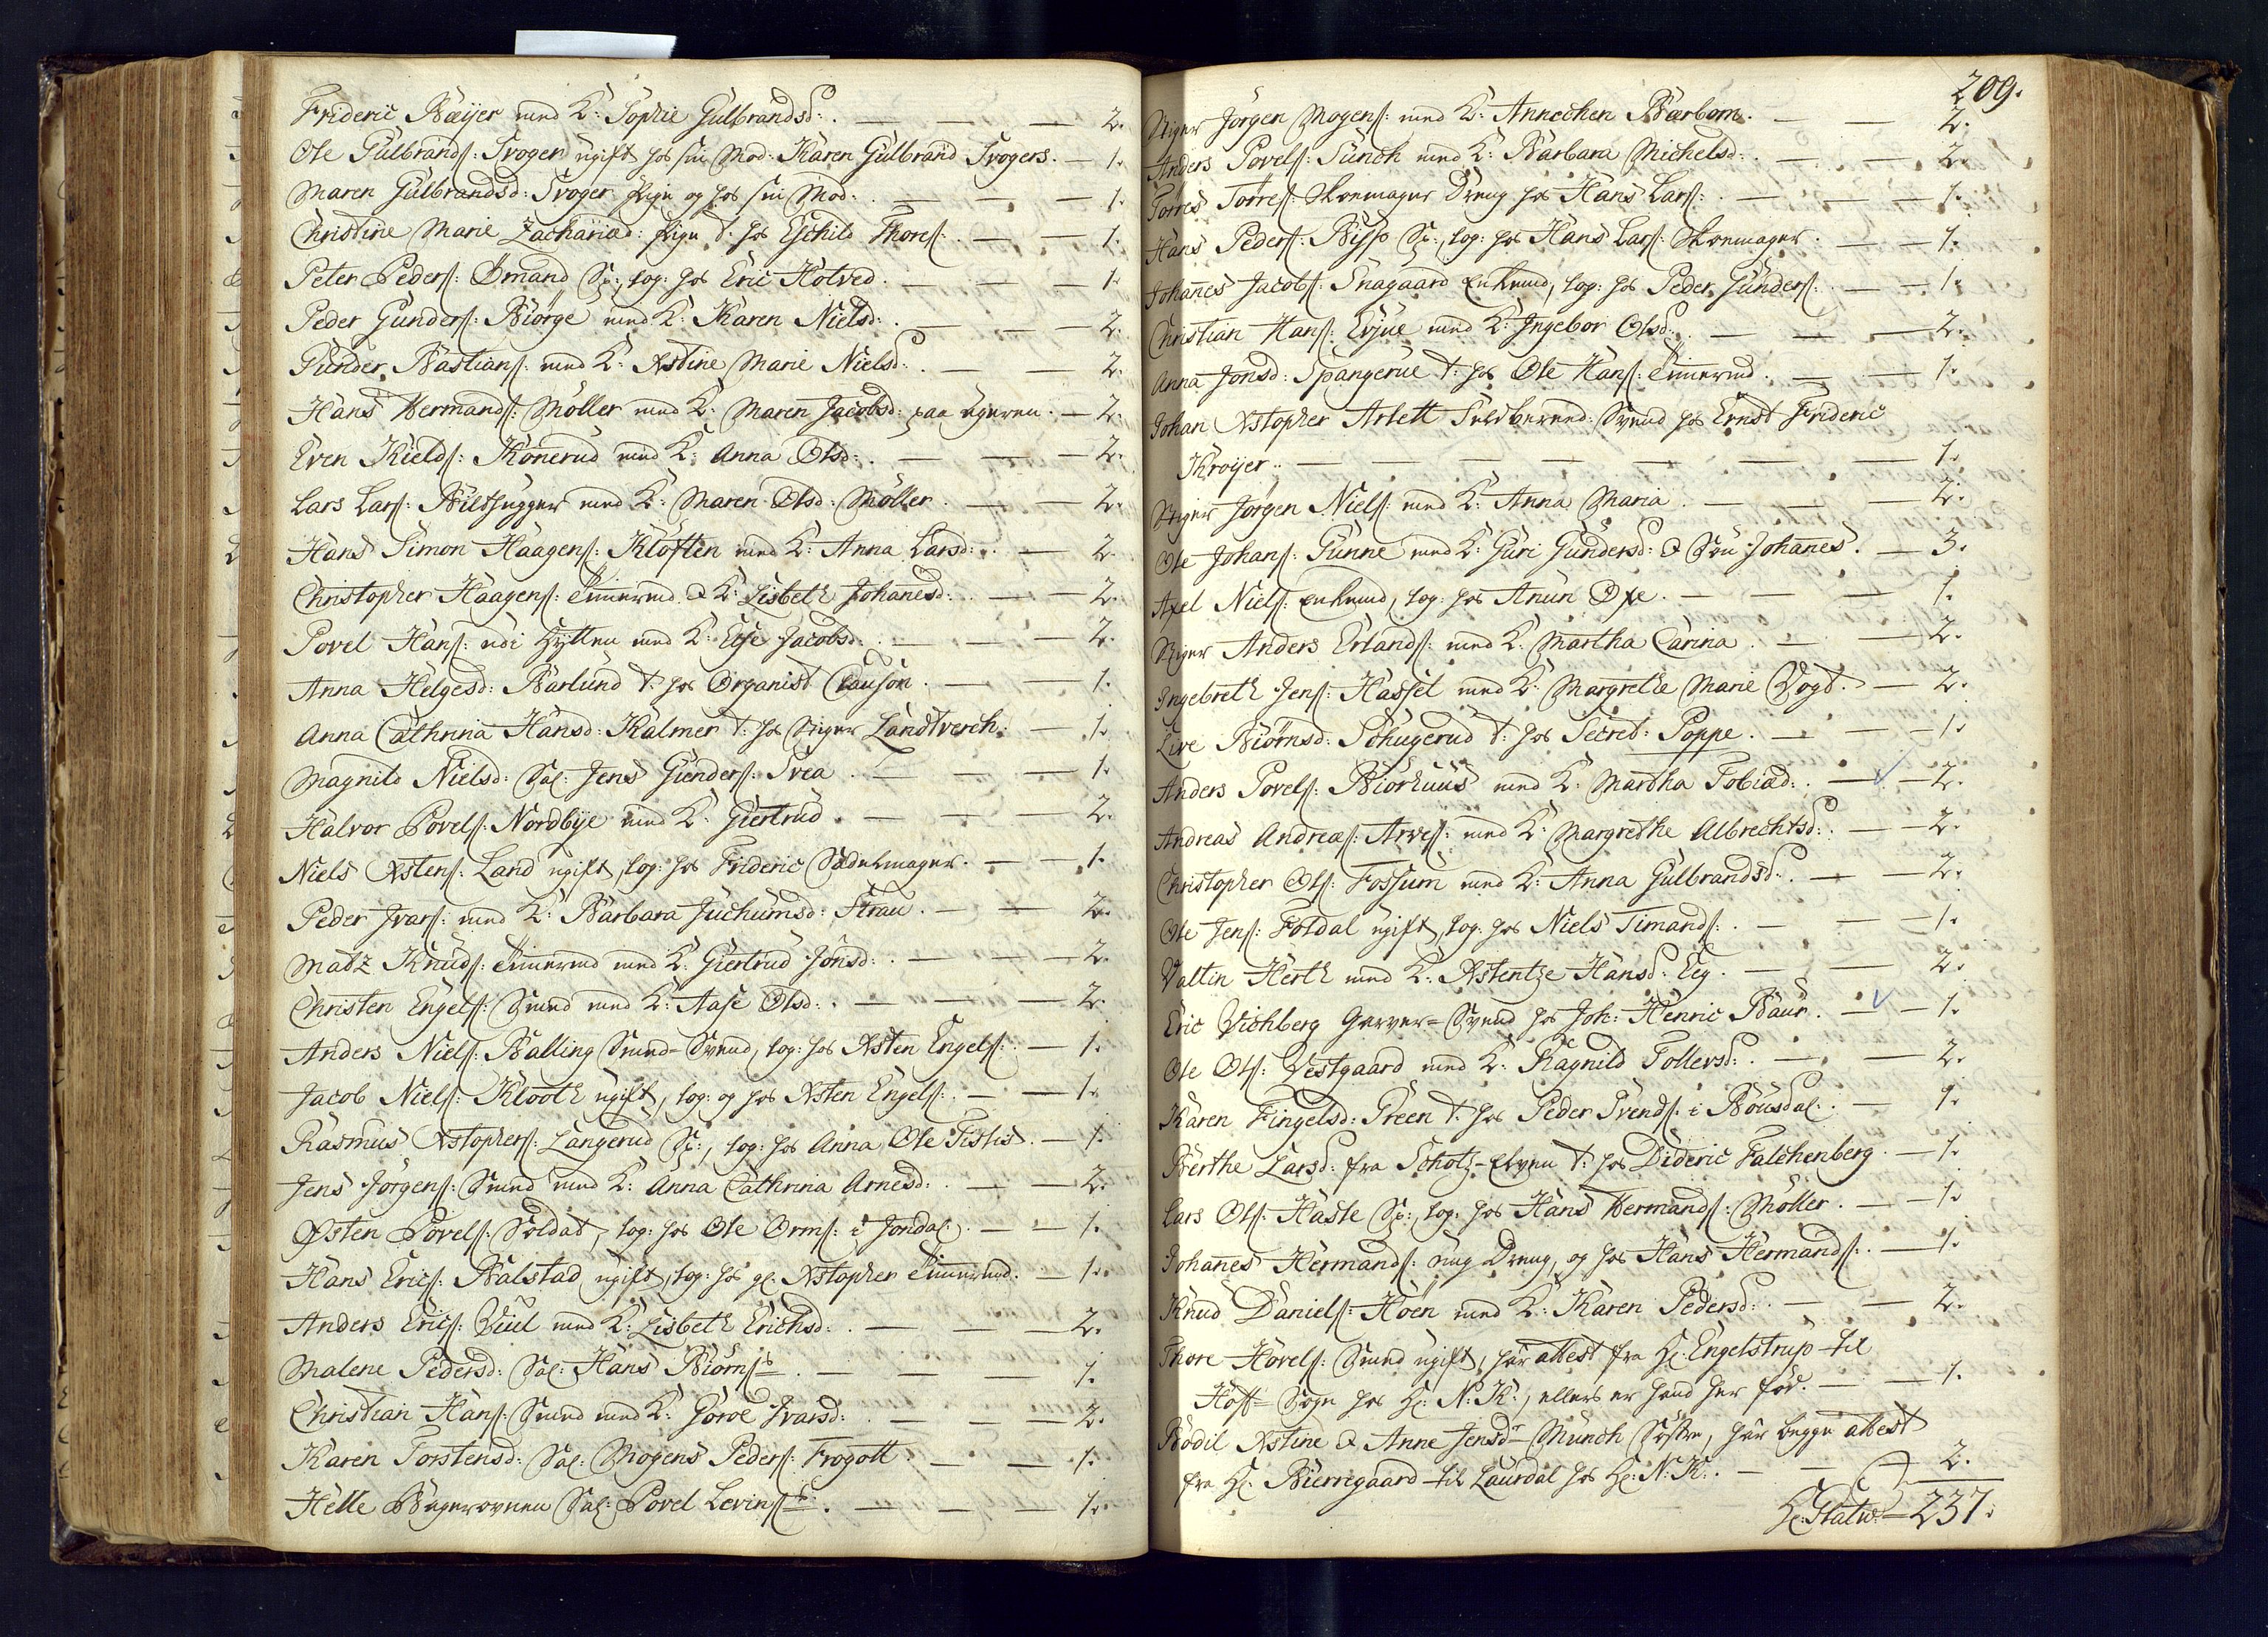 Frideric Bæyer med K: Sophie Gulbrandsd: . — — — 2.
Ole Gulbrands: Svogen ugift hos sin Mod: Karen Gulbrand Svogers. — 1.
Maren Gulbrandsd: Svoger Pige og hos sin Mod: . — — — 1.
Christine Marie Zachariæd: Pige t: hos Eschild Thores: . — — 1.
Peter Peders: Ømand log: hos Eric Hotved. — — — 1.
Peder Gunders: Biørge med K: Karen Nielsd: . — — — 2.
Gunder Bastians: med K: Xstine Marie Nielsd: . — — 2.
Hans Hermands: Møller med K: Maren Jacobsd: paa Ageren. — 2.
Even Kields: Konerud med K: Anna Olsd: . — — — 2.
Lars Lars: Bilthugger med K: Maren Olsd: Møller. — — 2.
Hans Simon Haagens: Kloften med K: Anna Larsd: . — 2.
Christopher Haagens: Timermd & K: Lisbeth Johanesd: . — — 2.
Povel Hans: udi Hytten med K: Else Jacobsd: . — — — 2.
Anna Helgesd: Barlund t: hos Organist Clauson. — — 1.
Anna Cathrina Hansd: Kalmer t: hos Stiger Landtverch. — 1.
Magnild Nielsd: Sal: Jens Gunders: Svea. — — — 1.
Halvor Povels: Nordbye med K: Giertrud. — — — 2.
Niels Xstens: Land ugift, log: hos Frideric Sadelmager. — — 1.
Peder Ivars: med K: Barbara Juchumsd: Strau. — — 2.
Matz Knuds: Timermd med K: Giertrud Jonsd: . — — — 2.
Christen Engels: Smed med K: Aase Olsd: . — — — 2.
Anders Niels: Balling Smed-Svend, log: hos Xsten Engels: . — 1.
Jacob Niels: Klooth ugift, log: og hos Xsten Engels: . — — 1.
Rasmus Xstophers: Langerud log: hos Anna Ole Fistis. — 1.
Jens Jørgens: Smed med K: Anna Cathrina Arnesd: . — — 2.
Østen Povels: Soldat, log: hos Ole Orms: i Jondal. — — 1.
Hans Erics: Balstad ugift, log: hos gl. Xstopher Timermd. — 1.
Anders Erics: Viul med K: Lisbeth Erichsd: . — — — 2.
Malene Pedersd: Sal: Hans Biørns: . — — — 1.
Christian Hans: Smed med K: Goroe Ivarsd: . — — — 2.
Karen Torstensd: Sal: Mogens Peders: Frogott. — — 1.
Helle Bagerovnen Sal: Povel Levins: . — — — 1.
209.
Stiger Jørgen Mogens: med K: Annechen Barbom. — — 2.
Anders Povels: Sunch med K: Barbara Michelsd: . — — 2.
Torres Torres: Skomager Dreng hos Hans Lars: . — — — 1.
Hans Peders: Bisp log: hos Hans Lars: Skomager. — — 1.
Johanes Jacobs: Snagaard Enkemd, log: hos Peder Gunders: . — — 1.
Christian Hans: Evjue med K: Ingebor Olsd: . — — — 2.
Anna Jonsd: Spangerue t: hos Ole Hans: Timermd. — — 1.
Johan Xstopher Artett Svend hos Ernst Frideric
Krøyer. — — — — — — 1.
Stiger Jørgen Niels: med K: Anna Maria. — — — 2.
Ole Johans: Gunne med K: Guri Gundersd: & Søn Johanes. — 3.
Axel Niels: Enkemd, log: hos Anun Oxe. — — — 1.
Stiger Anders Erlands: med K: Martha Carina. — — 2.
Ingebreth Jens: Hassel med K: Margrethe Marie Vogt. — 2.
Live Biørnsd: Schugerud t: hos Secret: Poppe. — — — 1.
Anders Povels: Biorhuus med K: Martha Tobiæd: . — — 2.
Andreas Andreæs: Arves: med K: Margrethe Albrechtsd: . — — 2.
Christopher Ols: Fossum med K: Anna Gulbrandsd: . — — 2.
Ole Jens: Foldal ugift, log: hos Niels Timands: . — — — 1.
Valtin Herth med K: Xstentze Hansd: Eeg. — — — 2.
Eric Vichberg Garver-Svend hos Joh: Henric Baur. — — 1.
Ole Ols: Vestgaard med K: Ragnild Tollevsd: . — — 2.
Karen Fingelsd: Green t: hos Peder Svends: i Bøusdal. — 1.
Berthe Larsd: fra Schotz-Elven t: hos Dideric Falchenberg. — 1.
Lars Ols: Hasle log: hos Hans Hermands: Møller. — — 1.
Johanes Hermands: ung Dreng, og hos Hans Hermands: . — 1.
Knud Daniels: Hoen med K: Karen Pedersd: . — — 2.
Thore Hovels: Smed ugift, har attest fra Hr: Engelstrup til
Hoff-Sogn hos Hr: N:K:, ellers er hand her fød. — — 1.
Bodil Xstine & Anne Jensd: Munch Søstre, har begge attest
fra Hr: Bierregaard til Laurdal hos Hr: N:K: . — — — 2.
237.